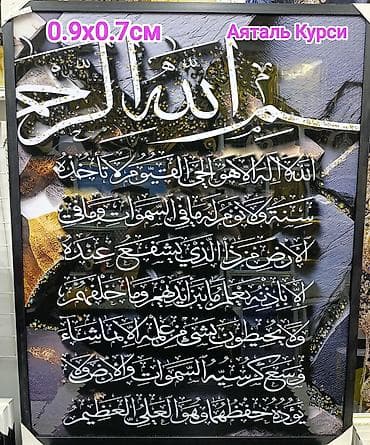 0.9х0.7см
Аяталь Курси
بسم الله الرحمن
الله لا اله الا هو الحي القيوم لا تاخذه
سنة ولا نوم له ما في السموات وما في
الارض من ذا الذي يشفع عنده
الا باذنه يعلم ما بين ايديهم وما خلفهم
ولا يحيطون بشيء من علمه الا بما شاء
وسع كرسيه السموات والارض ولا
يؤده حفظهما وهو العلي العظيم